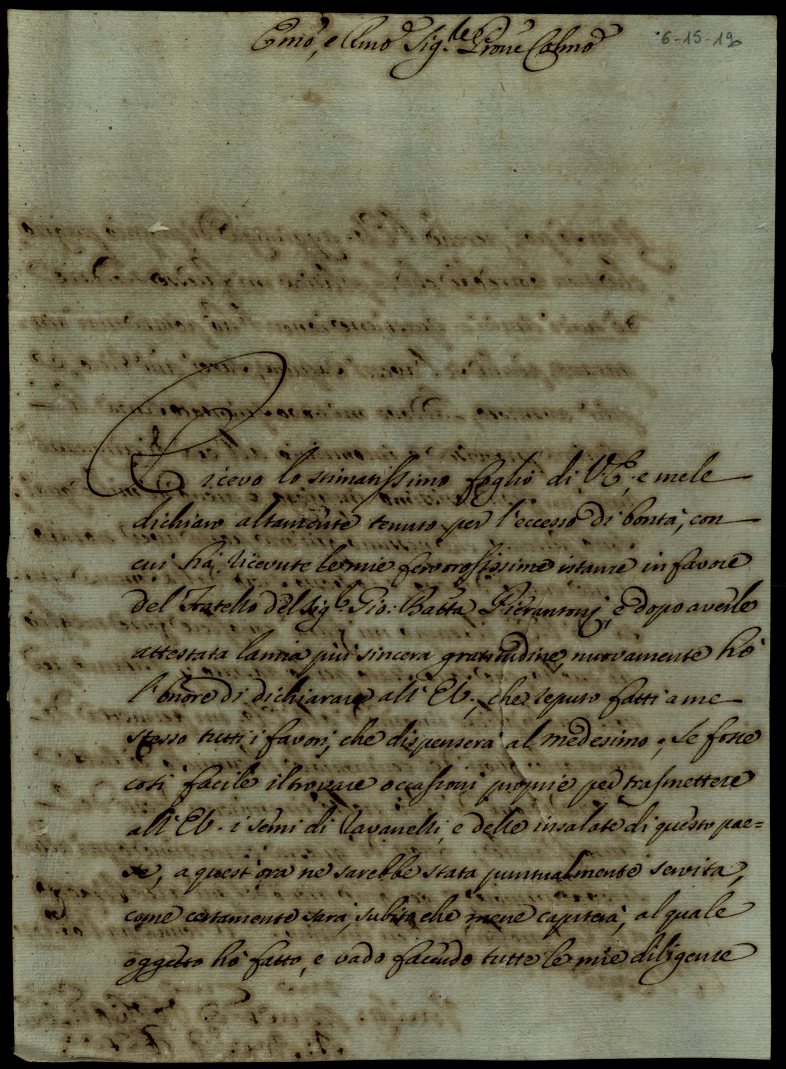 Emo, e Rmo Sig.re Prone Colmo
6-15-19
Ricevo lo stimatissimo foglio di VE, e mele
dichiaro altamente tenuto per l'eccesso di bontà, con
cui hà ricevute le mie fervorosissime istanze in favore
del Fratello del Sigr Gio: Batta Pierantonj, e dopo averle
attestata la mia più sincera gratitudine, nuovamente hò
l'onore di dichiarare all'Eb., che reputo fatti a me
stesso tutti i favori, che dispenserà al medesimo; Se fosse
così facile il trovare occasioni proprie per trasmettere
all'Eb. i semi di Ravanelli, e delle insalate di questo pae=
se, a quest'ora ne sarebbe stata puntualmente servita,
come certamente sarà, subito che mene capiterà, al quale
oggetto hò fatto, e vado facendo tutte le mie diligenze